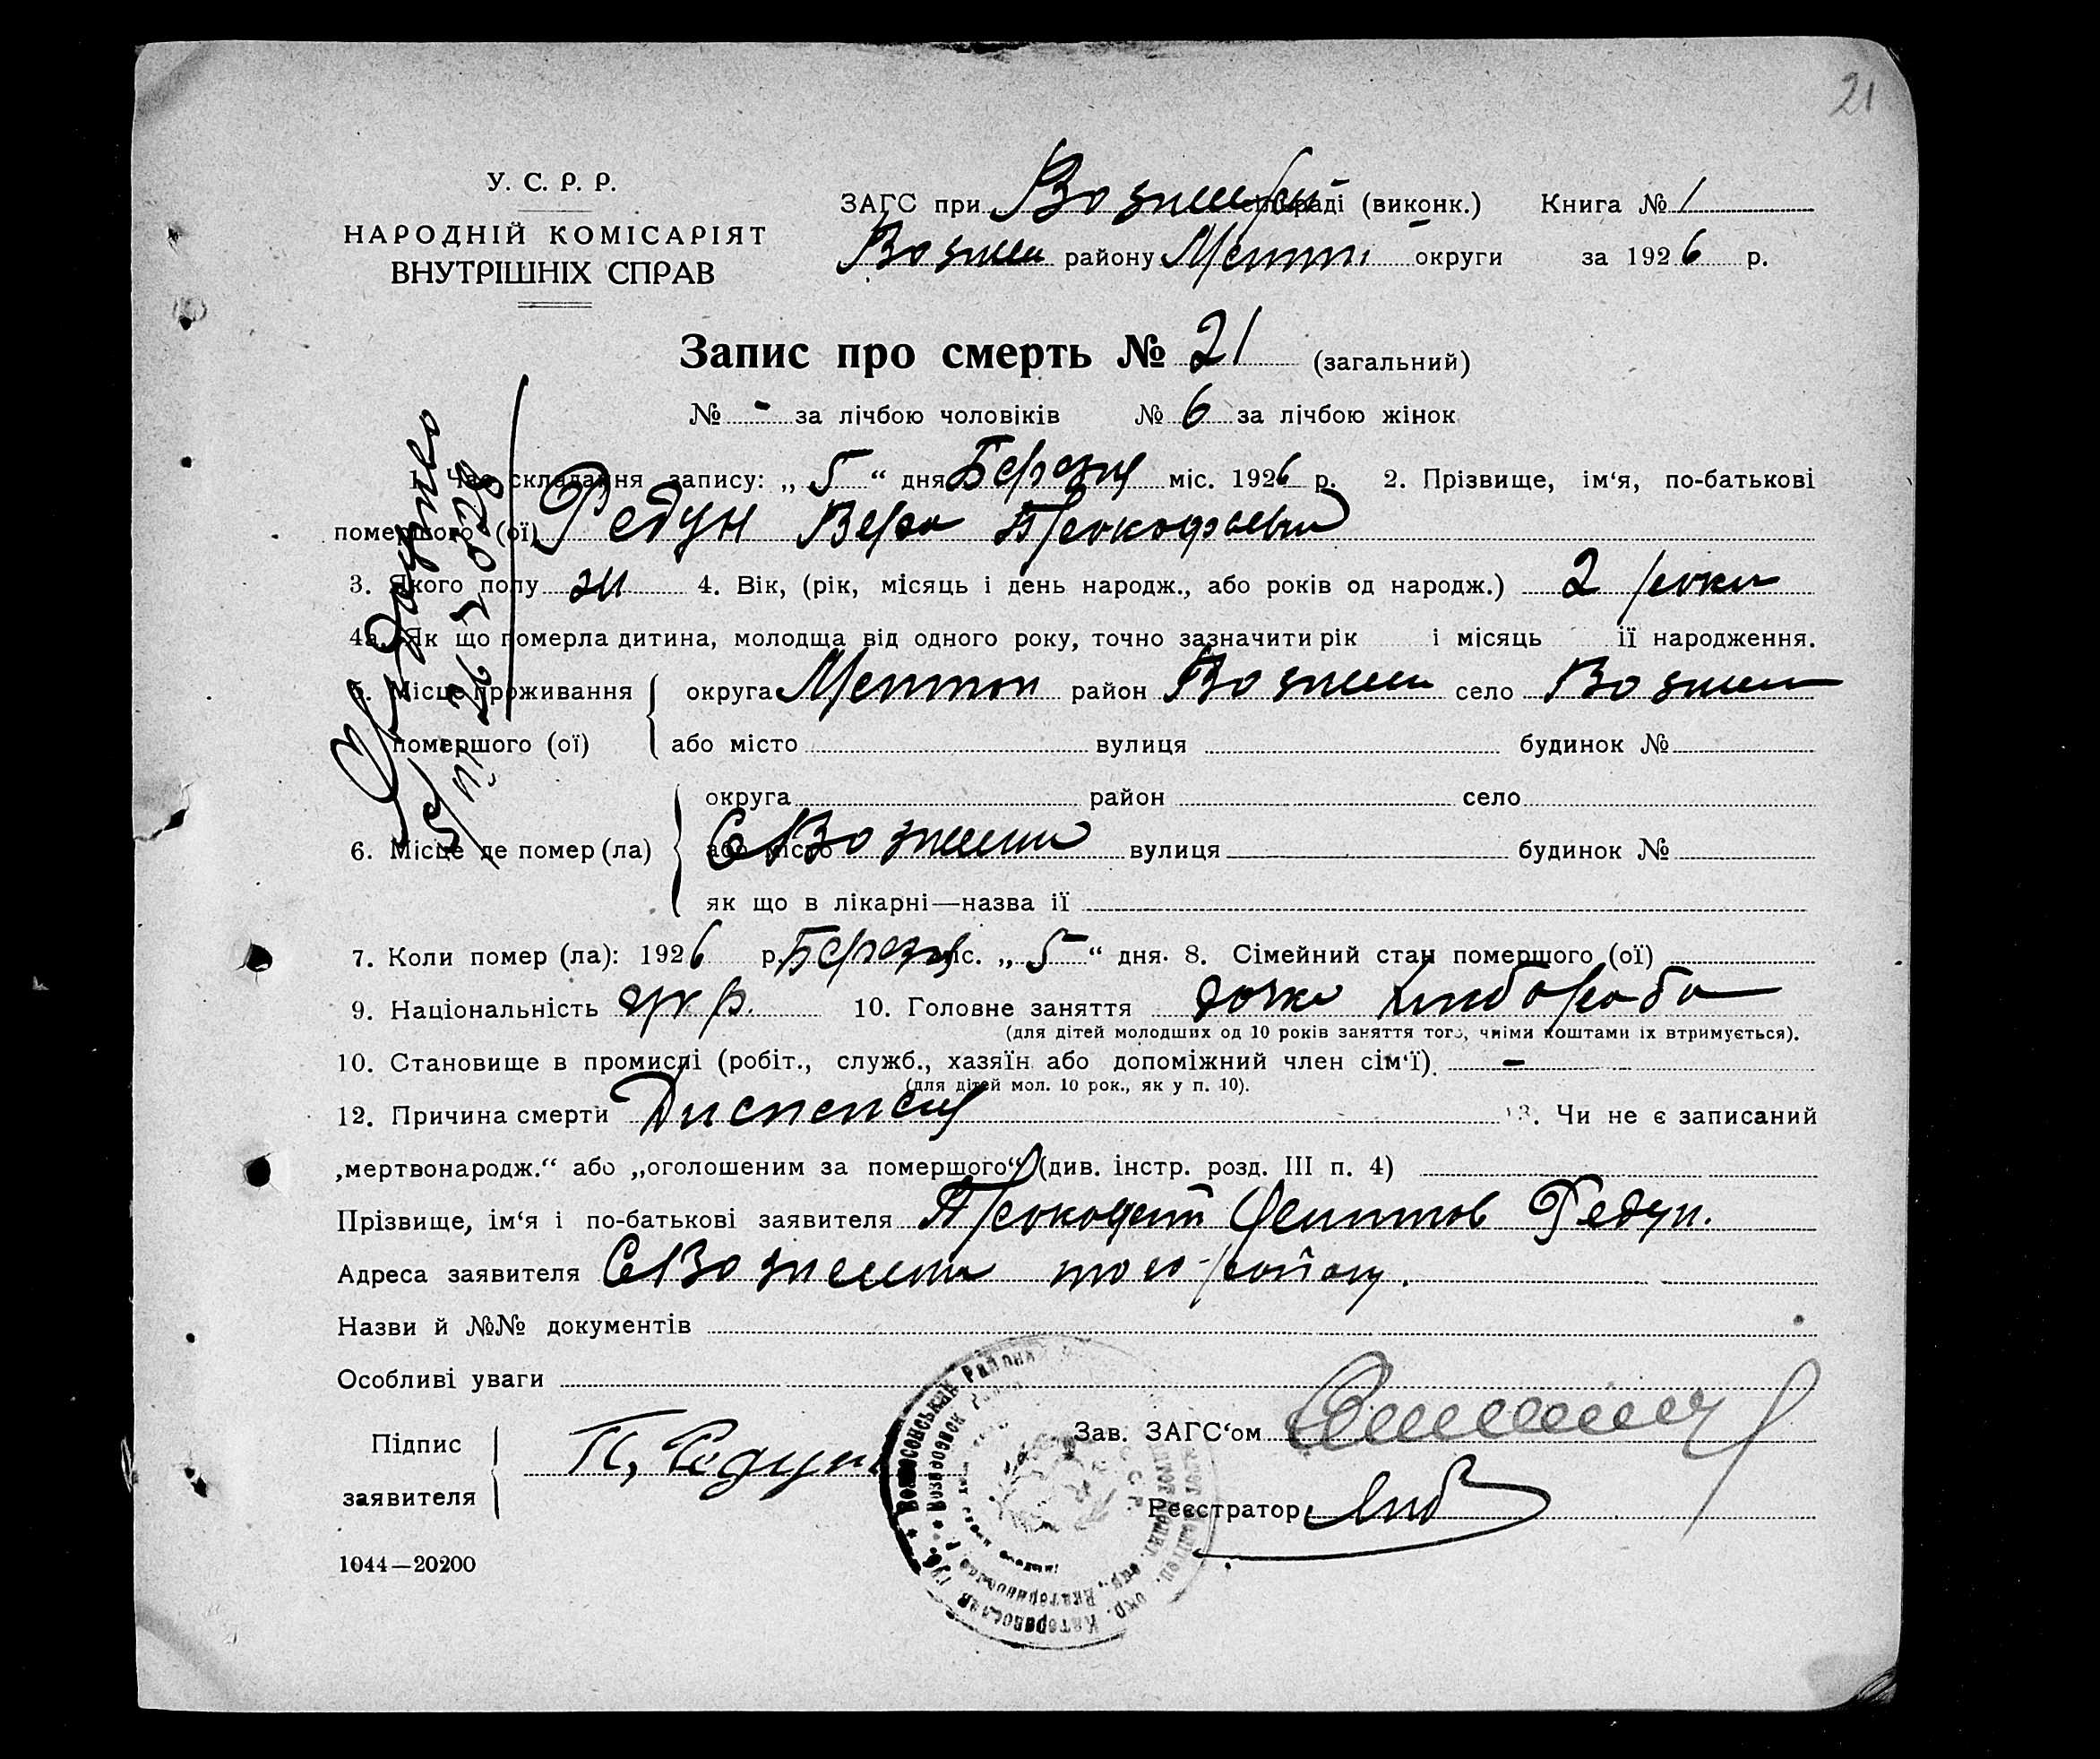 21
У. С. Р. Р.
НАРОДНІЙ КОМІСАРІЯТ
ВНУТРІШНІХ СПРАВ
ЗАГС при Вознен райраді (виконк.) Книга № 1
Вознен району Меліт округи за 1926 р.
Запис про смерть № 21 (загальний)
№ - за лічбою чоловіків № 6 за лічбою жінок
1. Час складання запису: „ 5 “ дня Березня міс. 1926 р. 2. Прізвище, ім‘я, по-батькові
помершого (ої) Федун Вера Прокофьевна
3. Якого полу ж 4. Вік, (рік, місяць і день народж., або років од народж.) 2 роки
4а. Як що померла дитина, молодща від одного року, точно зазначити рік і місяць її народження.
5. Місце проживання округа Мелітоп район Вознен село Вознен
помершого (ої) або місто вулиця будинок №
округа район село
6. Місце де помер (ла) або місто С Вознен вулиця будинок №
як що в лікарні—назва її
7. Коли помер (ла): 1926 р. Березня міс. „ 5 “ дня. 8. Сімейний стан помершого (ої)
9. Національність укр. 10. Головне заняття дочка хлибороба
(для дітей молодших од 10 років заняття того, чиїми коштами їх втримується).
10. Становище в промислі (робіт., служб., хазяїн або допоміжний член сім‘ї). -
(для дітей мол. 10 рок., як у п. 10).
12. Причина смерти Диспепсия 13. Чи не є записаний
„мертвонародж.“ або „оголошеним за помершого“ (див. інстр. розд. III п. 4)
Прізвище, ім‘я і по-батькові заявителя Прокофий Федун.
Адреса заявителя С Вознен того-району.
Назви й №№ документів
Особливі уваги
Підпис
заявителя П, Федун
Зав. ЗАГС‘ом
Реєстратор
1044—20200